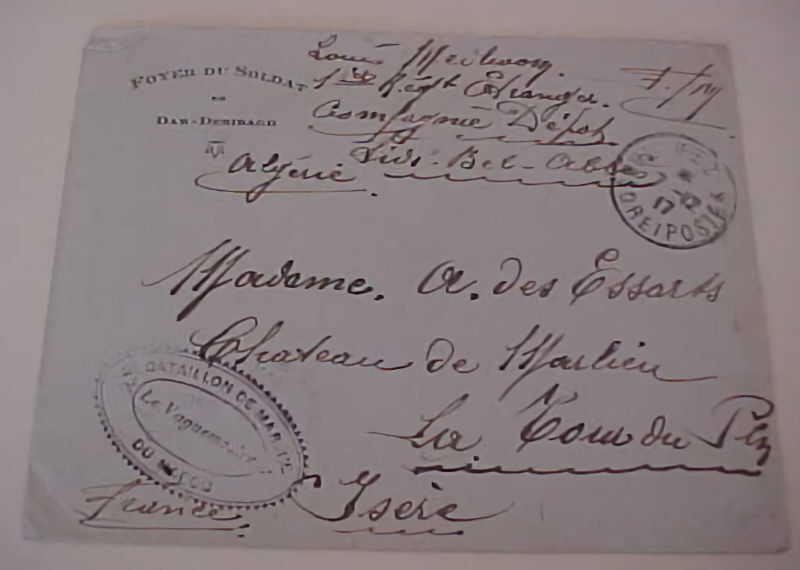 FOYER DU SOLDAT
DE
DAR-DERIBAGD
Louis
1er Régt Étranger. F. M
Compagnie Dépot
Sidi-Bel-Abbès
Algérie.
FEZ
* 7-12
17
POSTES
Madame. A. des Essarts
Chateau de Marlieu
La Tour du Pin
Isère
France.
BATAILLON DE MARCHE
Le Vaguemestre
DU MAROC